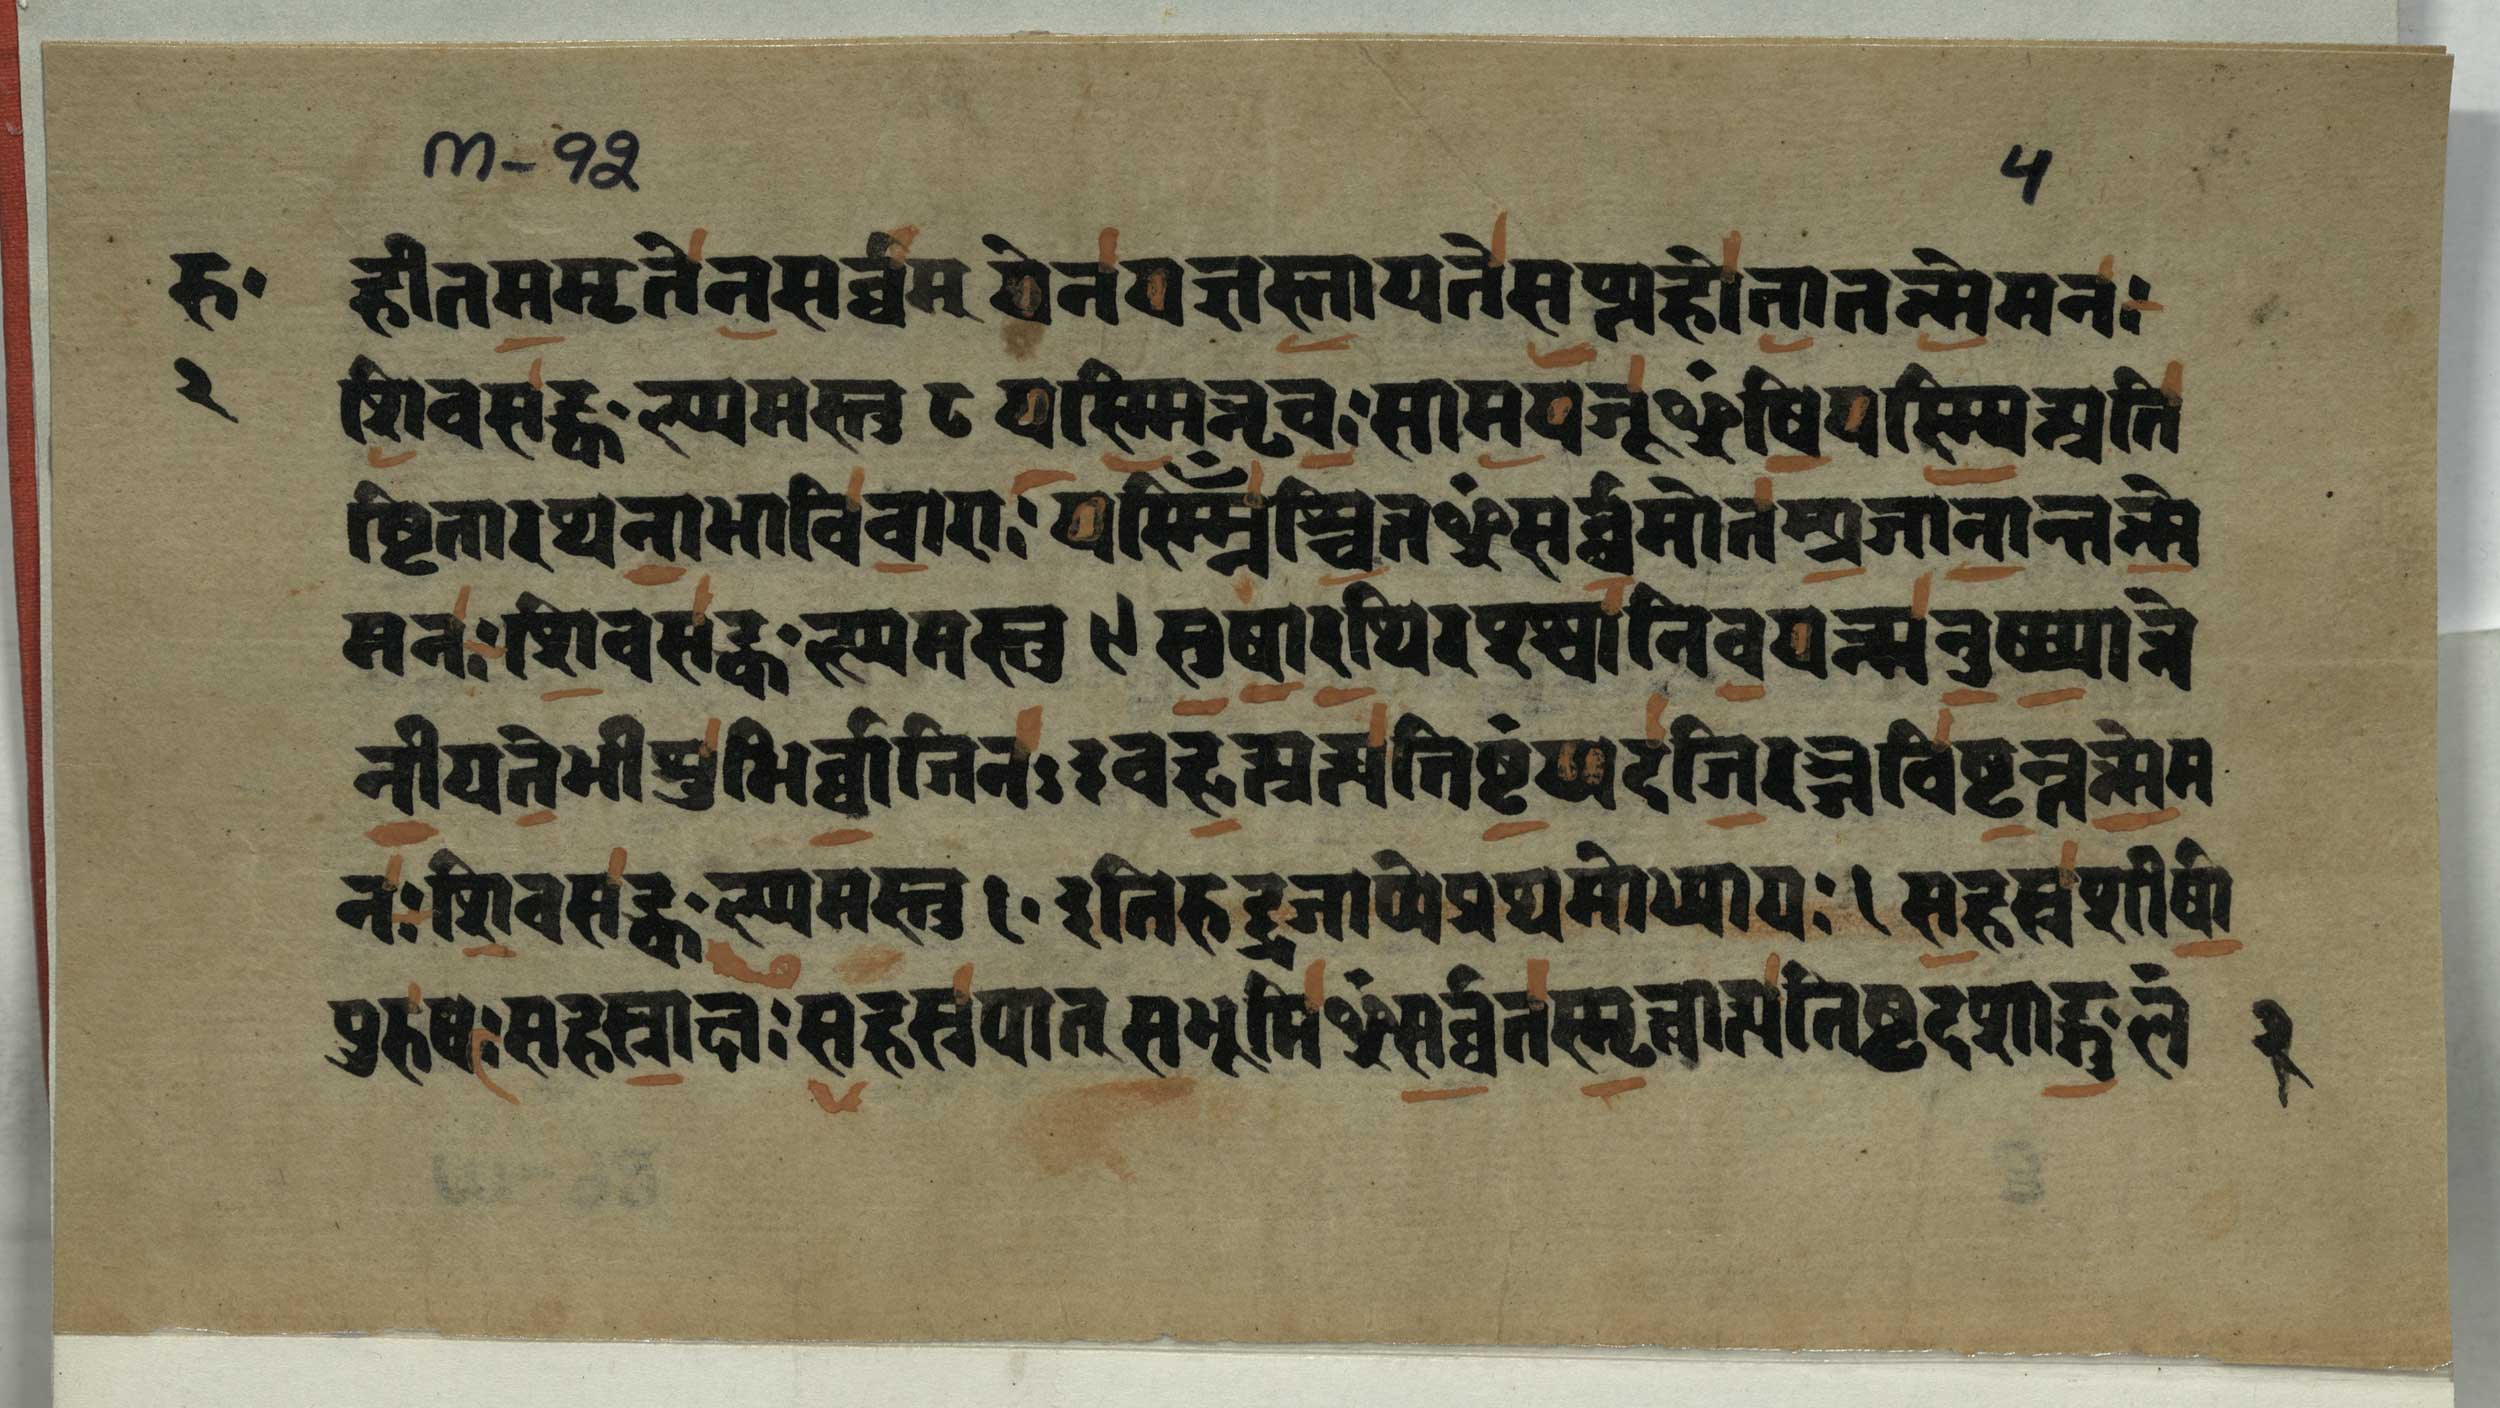 m-१२
५
रु॰
हीतममृतेनसर्व्वम् येनयज्ञस्तायतेसप्प्तहोतातन्न्मेमनः
२
शिवसङ्कल्प्पमस्तु ८ यस्मिन्नृचःसामयजूᳪषियस्म्मिन्प्रति
ष्ठितारथनाभाविवाराः यस्म्मिँश्चित्तᳪसर्व्वमोतम्प्रजानान्तन्न्मे
मनःशिवसङ्कल्प्पमस्तु ९ सुषारथिरश्श्वानिवयन्न्मनुष्ष्यान्ने
नीयतेभीशुभिर्व्वाजिनऽइवहृत्प्रतिष्ठंय्यदजिरञ्जविष्ठन्तन्न्मेम
नःशिवसङ्कल्प्पमस्तु १॰ इतिरुद्रजाप्येप्रथमोध्यायः १ सहस्रशीर्षा
पुरुषःसहस्राक्षःसहस्रपात् सभूमिᳪसर्व्वतस्पृत्वात्यतिष्ठद्दशाङ्गुलं
२